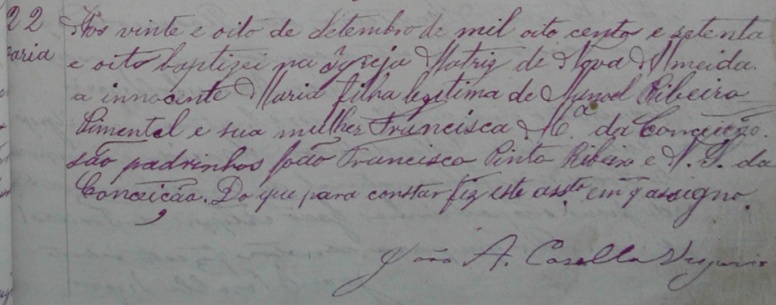 22
aria
Aos vinte e oito de Setembro de mil oito centos e setenta
e oito baptizei na Igreja Matriz de Nova Almeida
a innocente Maria filha legitima de Manoel Ribeiro
Pimentel e sua mulher Francisca M.ª da Conceição.
são padrinhos João Francisco Pinto Ribeiro e N. S. da
Conceição. Do que para constar fiz este ass.to em q assigno.
João A. Casella Vigario